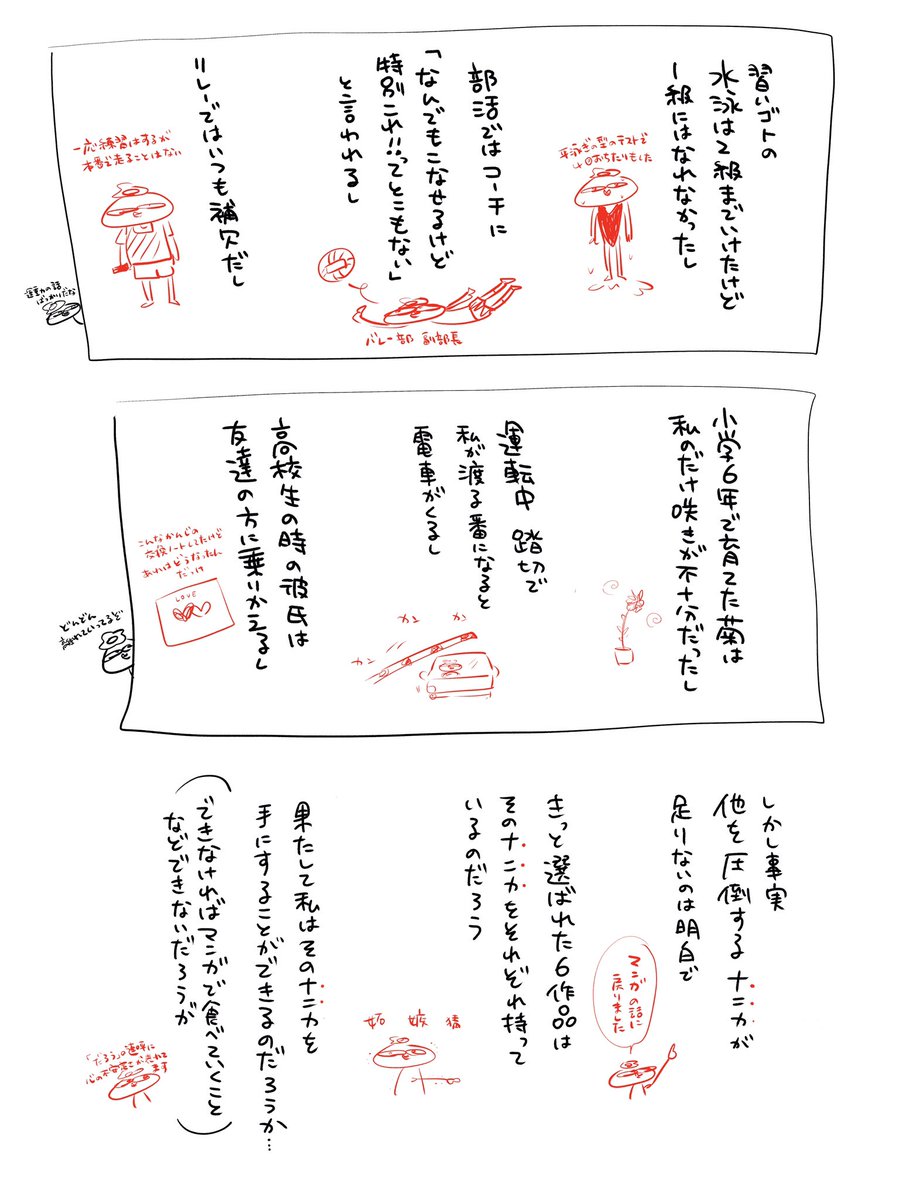 習いゴトの
水泳は2級までいけたけど
1級にはなれなかったし
平泳ぎの型のテストで
4回おちたりもしました
部活ではコーチに
「なんでもこなせるけど
特別これ!!ってとこもない」
と言われるし
バレー部 副部長
リレーではいつも補欠だし
一応練習はするが
本番で走ることはない
運動の話
ばっかりだな
小学6年で育てた菊は
私のだけ咲きが不十分だったし
運転中 踏切で
私が渡る番になると
電車がくるし
カン カン カ
高校生の時の彼氏は
友達の方に乗りかえるし
こんなかんじの
交換ノートしてたけど
あれはどうなったん
だっけ
LOVE
どんどん
離れていってるぞ
しかし事実
他を圧倒するナニカが
足りないのは明白で
マンガの話に
戻りました
きっと選ばれた6作品は
そのナニカをそれぞれ持って
いるのだろう
果たして私はそのナニカを
手にすることができるのだろうか…
(できなければマンガで食べていくこと
などできないだろうが)
「だろう」の連呼に
心の不安定さが表れてます